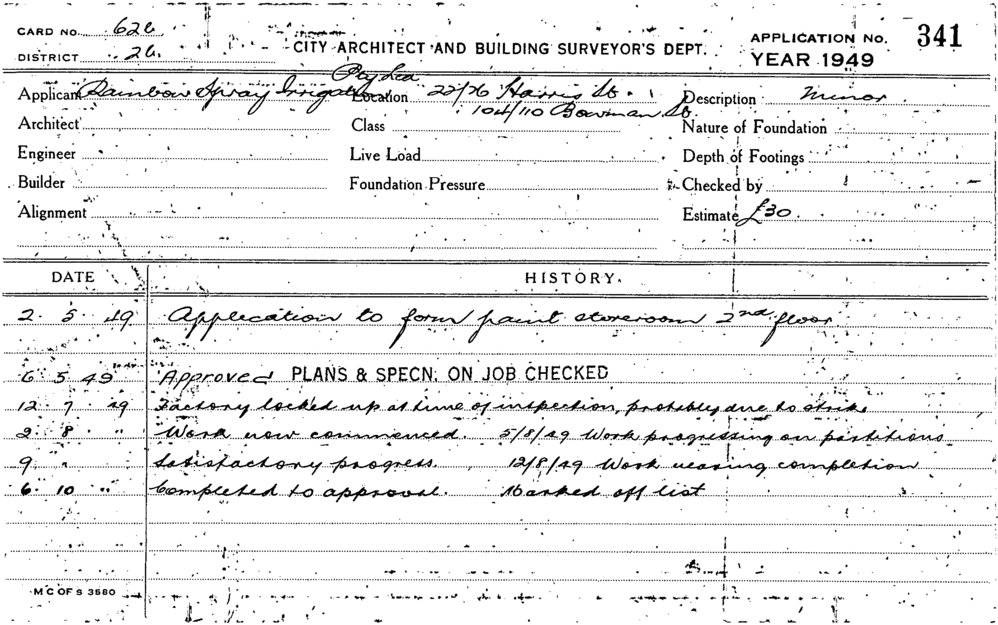 CARD No. 626
DISTRICT 26.
CITY ARCHITECT AND BUILDING SURVEYOR'S DEPT.
APPLICATION No. 341
YEAR 1949
Applicant Rainbow Spray Irrigation Pty Ltd Location 22/26 Harris St. Description Minor
104/110 Bowman St.
Architect Class Nature of Foundation
Engineer Live Load Depth of Footings
Builder Foundation Pressure Checked by
Alignment Estimate £30.
DATE HISTORY.
2. 5. 49 Application to form paint storeroom 2nd floor.
6 5 49 Approved PLANS & SPECN. ON JOB CHECKED
12 7 49 Factory locked up at time of inspection, probably due to strike
2. 8 " Work now commenced. 5/8/49 Work progressing on partitions
9 " Satisfactory progress. 12/8/49 Work nearing completion
6. 10 " Completed to approval. Marked off list
M C OF S 3580